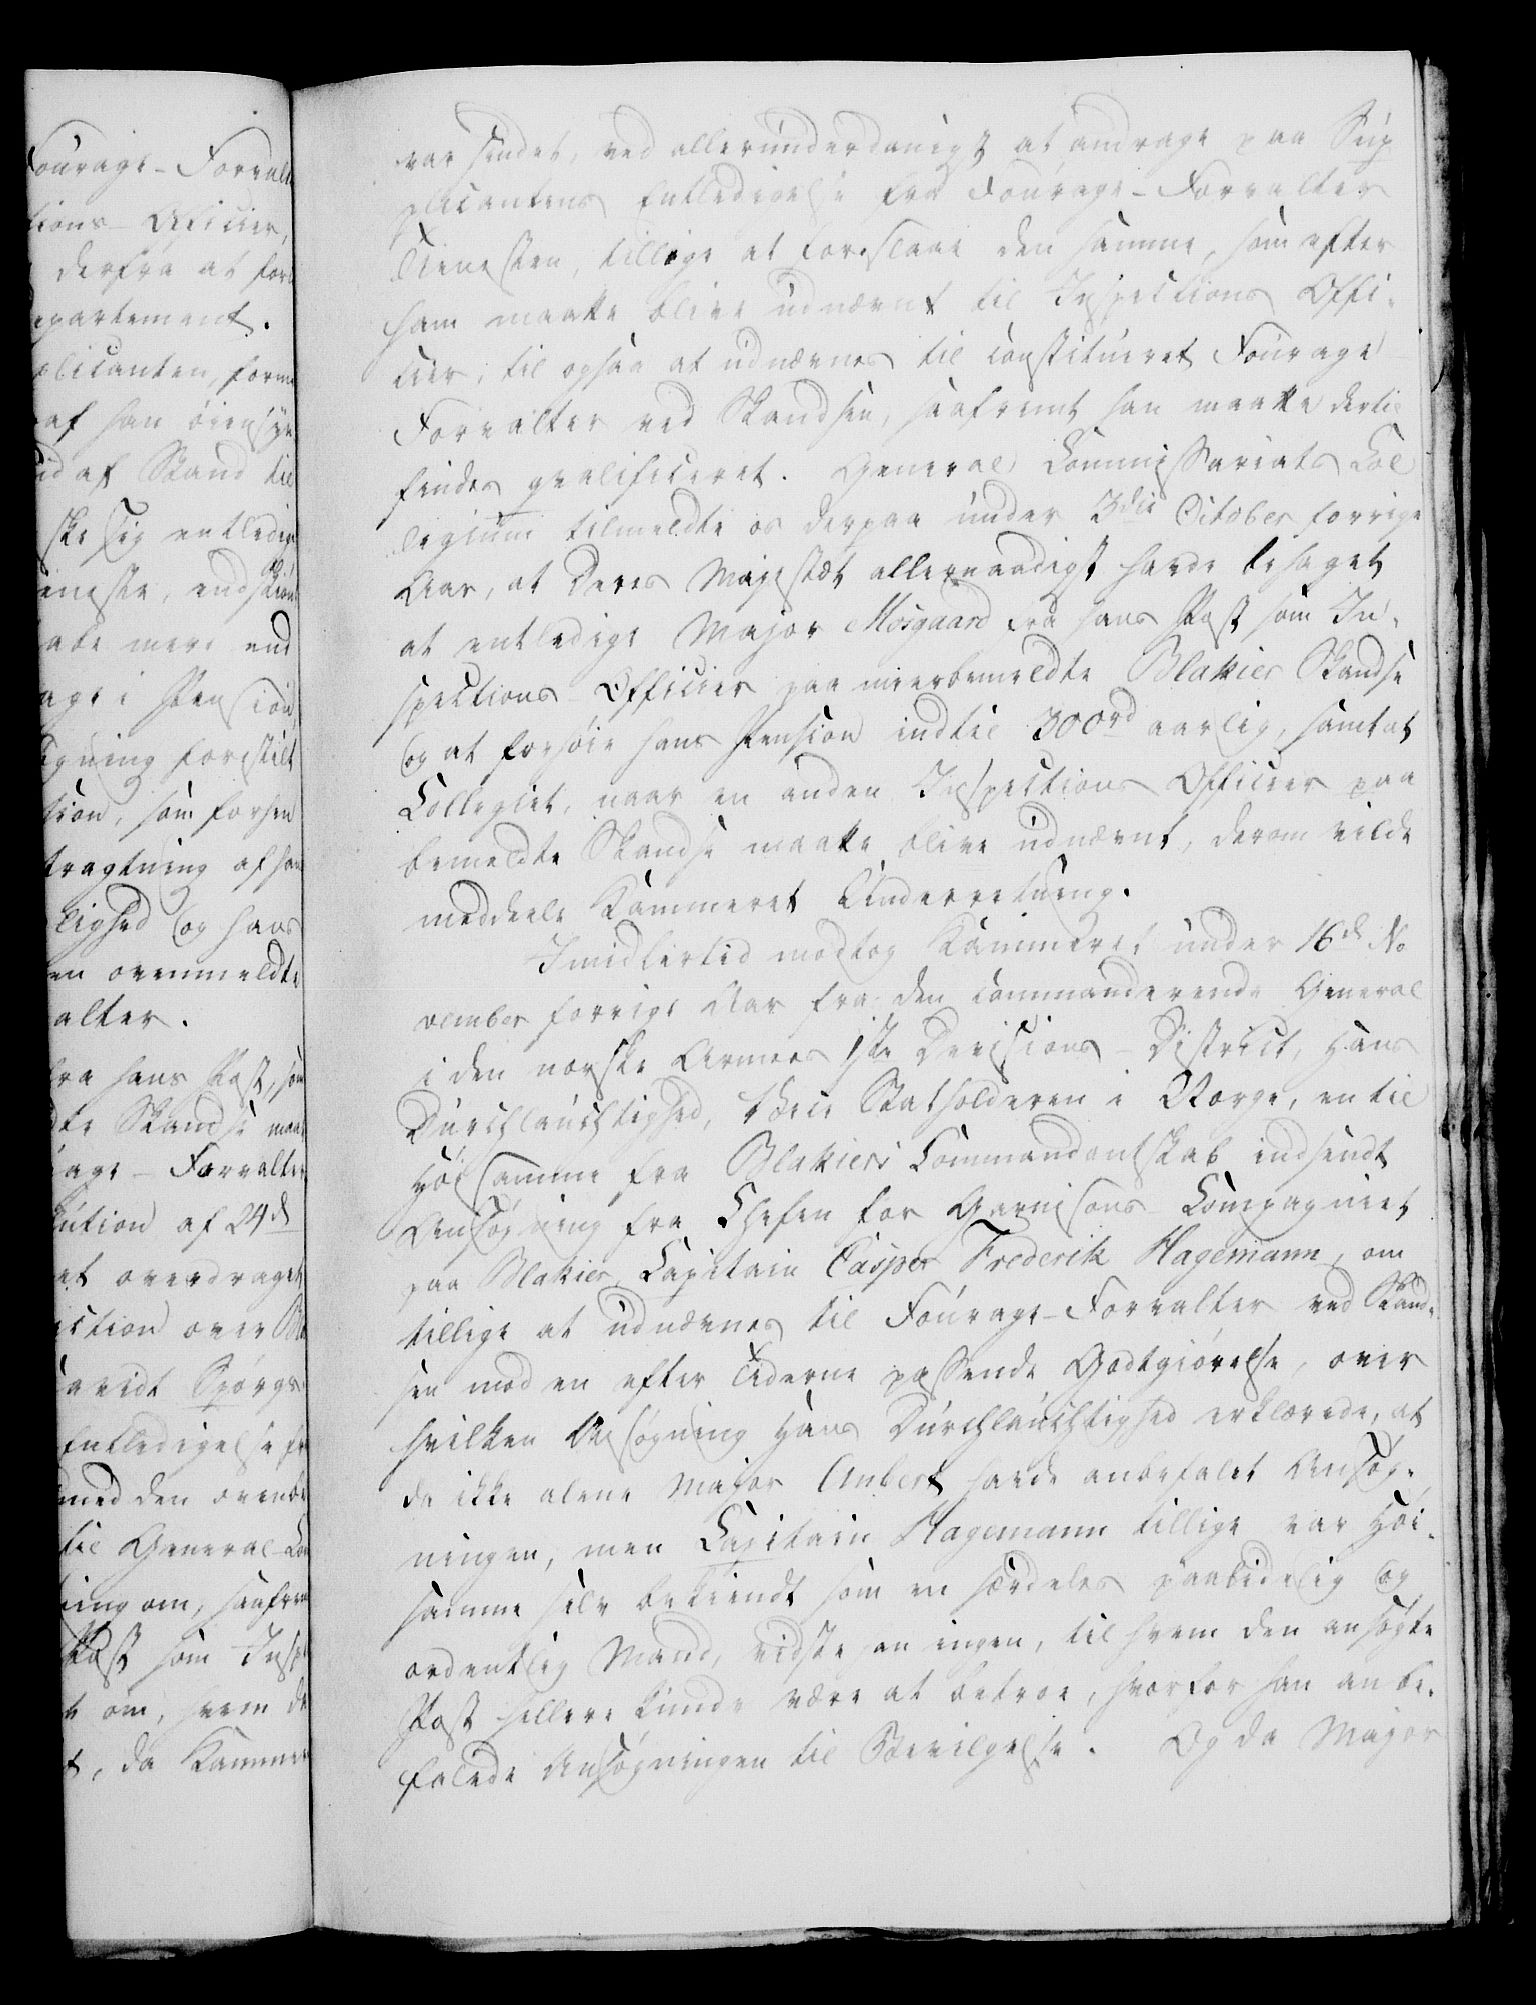 Fourage-Forvalt
tions-Officier,
derfra at for
epartement.
plicanten, form
af han öiensyn
id af Stand til
ske sig entledig
ieneste, endskiön
abe mere end
age i Pension
igning forestilt
sion, som forhen
tragtning af han
lighed og hans
en ovenmeldte
alter.
fra hans Post, som
dte Skandse maa
age-Forvalter
lution af 24de
at overdraget
ection over Bla
savidt Spörgs
Entledigelse fr
med den ovenbe
til General-Com
ning om, saafre
Post som Insp
t om, hvem d
t, da Kammer
var sindet, ved allerunderdanigst at andrage paa Sup
plicantens Entledigelse fra Fourage-Forvalter
Tienesten, tillige at foreslaae den samme, som efter
ham maatte blive udnævnt til Inspections Offi-
cier, til ogsaa at udnævnes til constitueret Fourage-
Forvalter ved Skandsen, saafremt han maatte dertil
findes qvalificeret. General Commissariats Col
legium tilmeldte os derpaa under 3die October forrige
Aar, at Deres Majestæt allernaadigst havde behaget
at entledige Major Mosgaard fra hans Post som In-
spections-Officier paa meerbemeldte Blakier Skandse
og at forhöie hans Pension indtil 300rd aarlig, samt at
Collegiet, naar en anden Inspections Officier paa
bemeldte Skandse maatte blive udnævnt, derom vilde
meddeele Kammeret Underretning.
Imidlertid modtog Kammeret under 16de No
vember forrige Aar fra den commanderende General
i den norske Armees 1ste Divisions-District, Hans
Durchlauchtighed, Vice Statholderen i Norge, en til
Höisamme fra Blakiers Commandantskab indsendt
Ansögning fra Chefen for Garnisons-Compagniet
paa Blakier, Capitain Casper Frederik Hagemann, om
tillige at udnævnes til Fourage-Forvalter ved Skand-
sen mod en efter Tiderne passende Godtgiörelse, over
hvilken Ansögning Hans Durchlauchtighed erklærede, at
da ikke alene Major Aubert havde anbefalet Ansög-
ningen, men Capitain Hagemann tillige var Höi-
samme selv bekiendt som en særdeles paalidelig og
ordentlig Mand, vidste han ingen, til hvem den ansögte
Post hellere kunde være at betroe, hvorfor han anbe-
falede Ansögningen til Bevilgelse. Og da Major